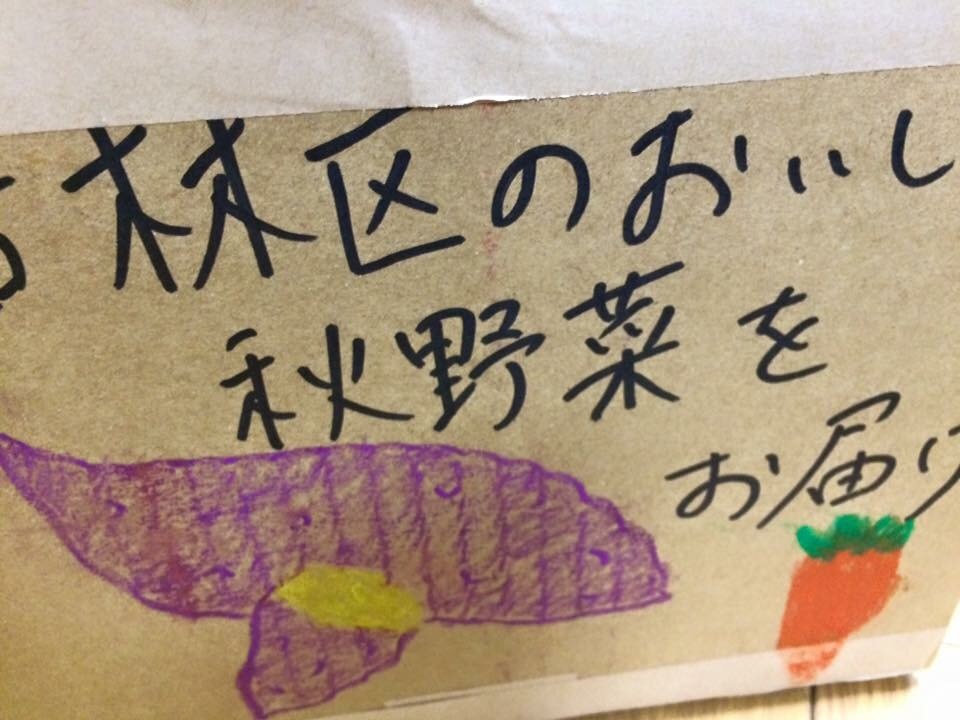 林区のおいし
秋野菜を
お届け